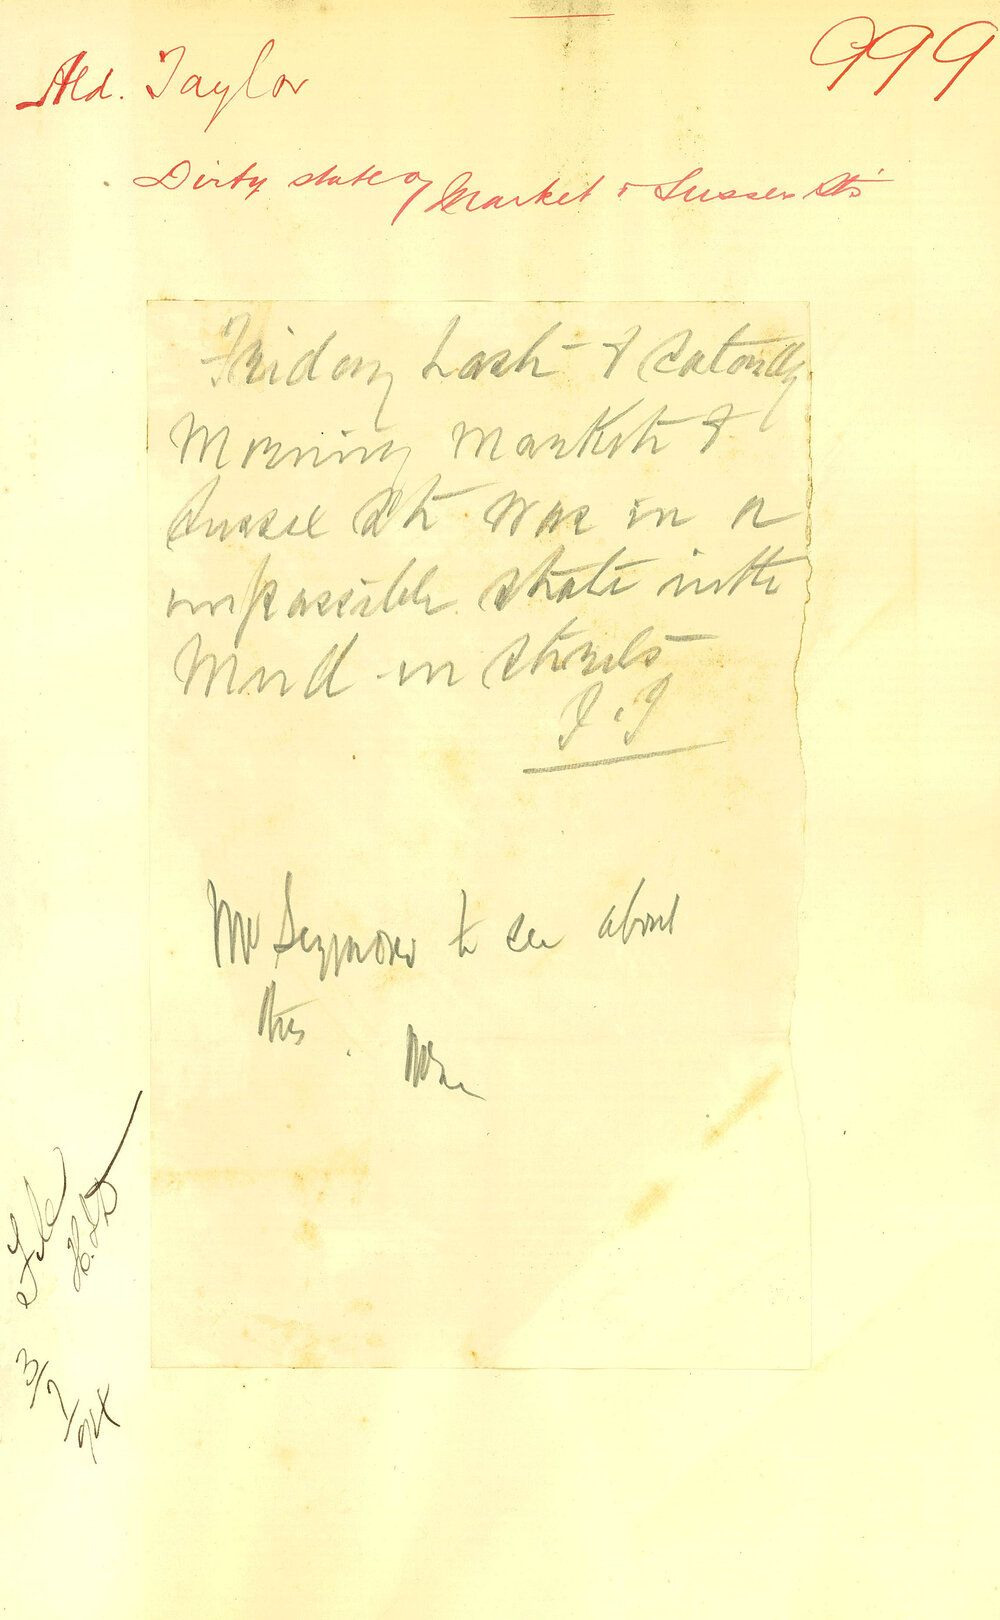 Ald. Taylor
999
Dirty state of Market & Sussex Sts
Friday Last & Saturday
Morning Market &
Sussex St was in a
impassible state with
Mud in Streets
Mr Seymour to see about
this.
File
3/7/94